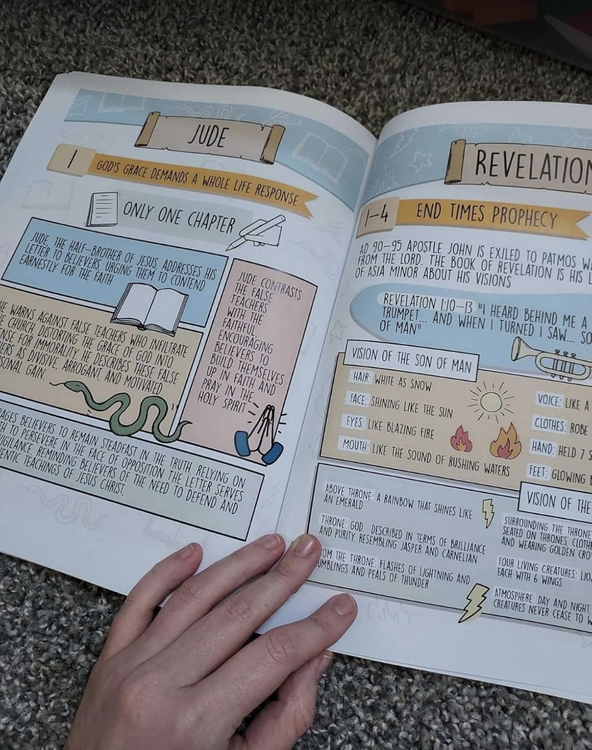 JUDE
1
GOD'S GRACE DEMANDS A WHOLE LIFE RESPONSE
ONLY ONE CHAPTER
JUDE, THE HALF-BROTHER OF JESUS ADDRESSES HIS
LETTER TO BELIEVERS, URGING THEM TO CONTEND
EARNESTLY FOR THE FAITH
WARNS AGAINST FALSE TEACHERS WHO INFILTRATE
CHURCH DISTORTING THE GRACE OF GOD INTO
FOR IMMORALITY. HE DESCRIBES THESE FALSE
AS DIVISIVE, ARROGANT, AND MOTIVATED
GAIN.
JUDE CONTRASTS
THE FALSE
TEACHERS
WITH THE
FAITHFUL
ENCOURAGING
BELIEVERS TO
BUILD THEMSELVES
UP IN FAITH AND
PRAY IN THE
HOLY SPIRIT
BELIEVERS TO REMAIN STEADFAST IN THE TRUTH RELYING ON
TO PERSEVERE IN THE FACE OF OPPOSITION. THE LETTER SERVES
VIGILANCE REMINDING BELIEVERS OF THE NEED TO DEFEND AND
TEACHINGS OF JESUS CHRIST.
REVELATION
1-4
END TIMES PROPHECY
AD 90-95 APOSTLE JOHN IS EXILED TO PATMOS
FROM THE LORD. THE BOOK OF REVELATION IS HIS
OF ASIA MINOR ABOUT HIS VISIONS
REVELATION 1:10-13 "I HEARD BEHIND ME A
TRUMPET... AND WHEN I TURNED I SAW...
OF MAN"
VISION OF THE SON OF MAN
HAIR: WHITE AS SNOW
FACE: SHINING LIKE THE SUN
EYES: LIKE BLAZING FIRE
MOUTH: LIKE THE SOUND OF RUSHING WATERS
VOICE: LIKE A
CLOTHES: ROBE
HAND: HELD 7
FEET: GLOWING
VISION OF THE
ABOVE THRONE: A RAINBOW THAT SHINES LIKE
AN EMERALD
THRONE: GOD, DESCRIBED IN TERMS OF BRILLIANCE
AND PURITY RESEMBLING JASPER AND CARNELIAN
THE THRONE: FLASHES OF LIGHTNING AND
AND PEALS OF THUNDER
SURROUNDING THE THRONE
SEATED ON THRONES,
AND WEARING GOLDEN
FOUR LIVING CREATURES:
EACH WITH 6 WINGS
ATMOSPHERE: DAY AND NIGHT
CREATURES NEVER CEASE TO